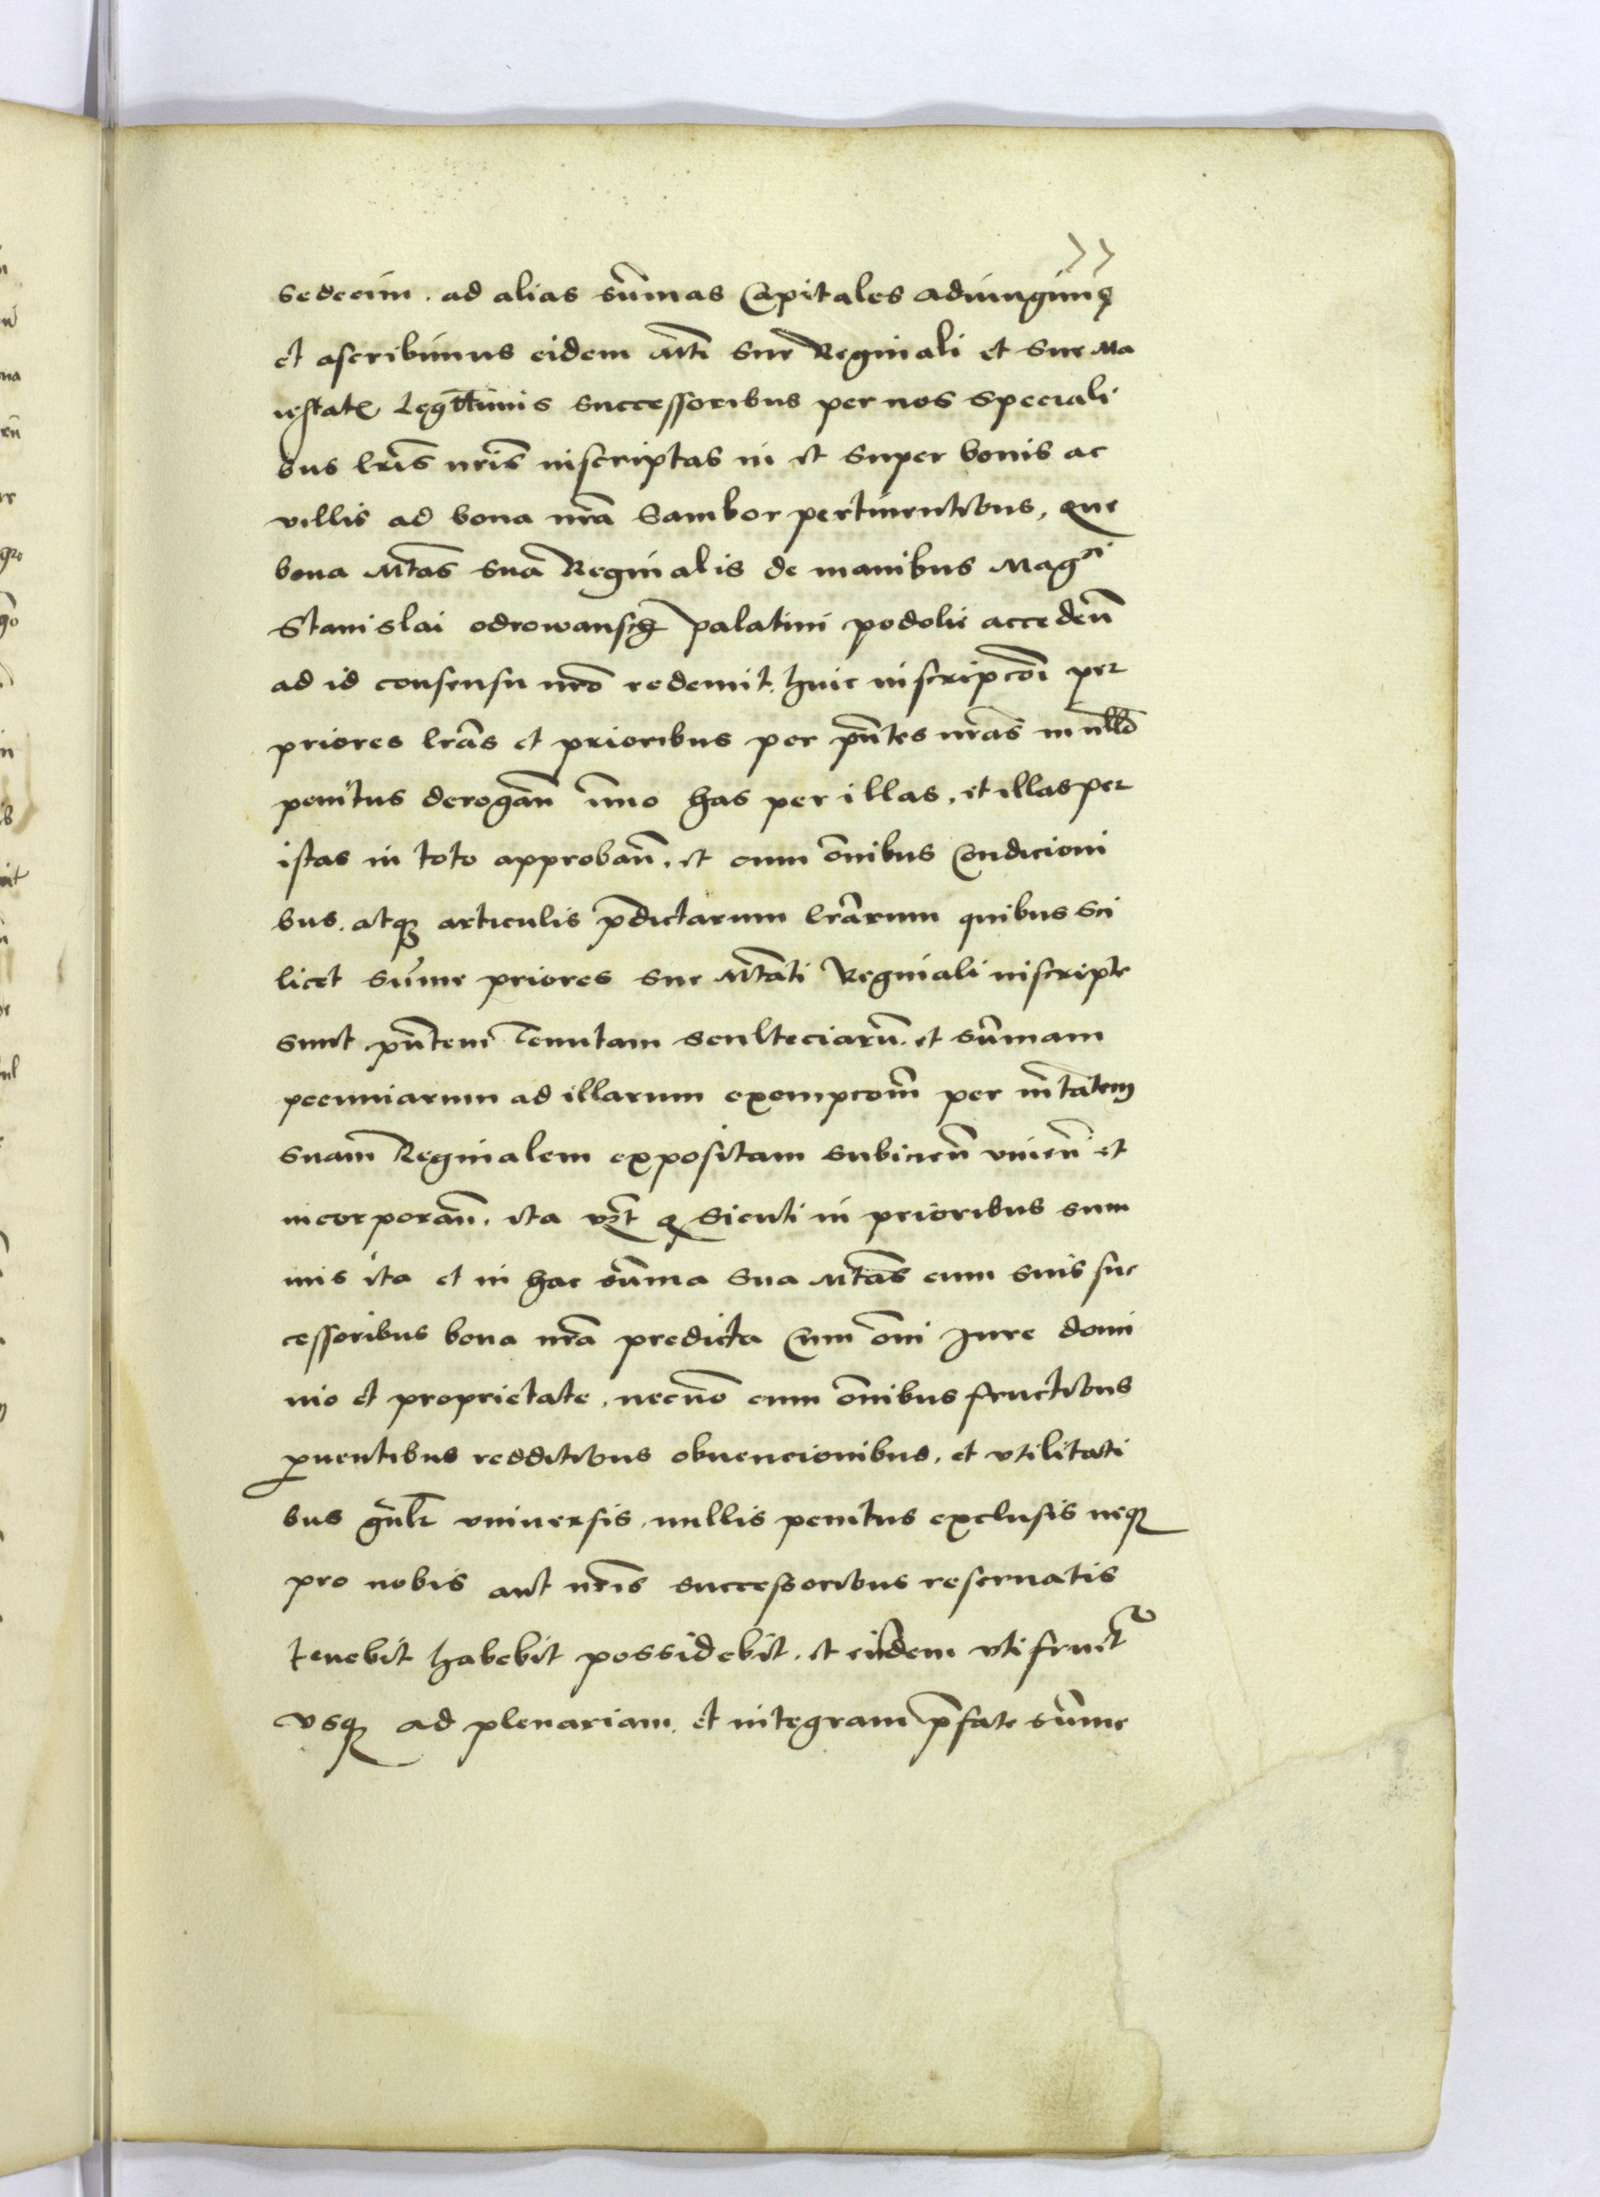 sedecim. ad alias sum̄as Capitales adiungimꝯ
et ascribimus eidem Mti̅ sue Reginali et sue Ma
iestatꝭ Legittimis successoribus per nos speciali
bus lr̄is nr̄is inscriptas in et super bonis ac
villis ad bona nr̄a Sambor pertinentibus, que
bona Mtas̄ sua Reginalis de manibus Mag^ci
Stanislai odrowansci palatini podolie acceden̄
ad id consensu nr̄o redemit. huic inscripcōi per
priores lr̄as et prioribus per pn̄tes nr̄as in nullo
penitus derogan̄ im̄o has per illas, et illas per
istas in toto approban̄. et cum om̄ibus Condicioni
bus. atqꝫ articulis p̄dictarum lr̄arum quibus sci
licet sum̄e priores sue Mtāti Reginali inscripte
sunt pn̄tem Tenutam sculteciarū. et sum̄am
pecuniarum ad illarum exempcōm̄ per mtātem
suam Reginalem expositam subicien̄ vnien̄ et
incorporan̄. ita vꝫt ꝙ sicuti in prioribus sum
mis ita et in hac sum̄a sua Mtas̄ cum suis suc
cessoribus bona nr̄a predicta Cum om̄i Jure domi
nio et proprietate. necnō cum om̄ibus fructibus
ꝓuentibus redditibus obuencionibus. et vtilitati
bus gn̄lr̄ vniuersis. nullis penitus exclusis neqꝫ
pro nobis aut nr̄is successoribus reseruatis
tenebit habebit possidebit. et eisdem vti fruet^r
vsqꝫ ad plenariam. et integram p̄fate sum̄e